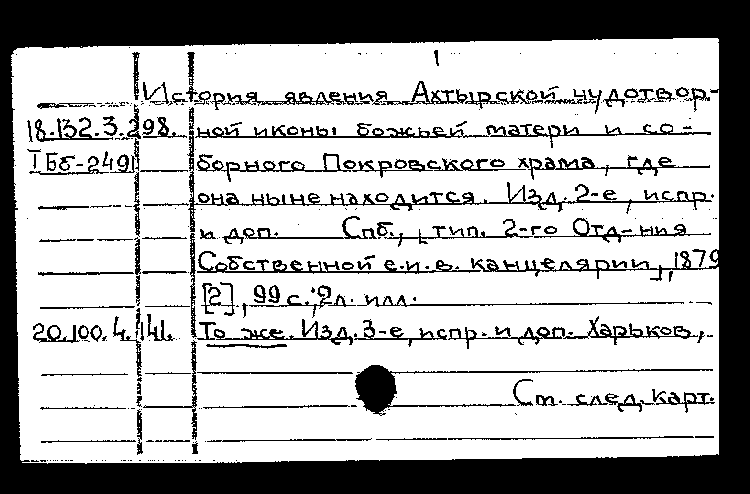 История явления Ахтырской чудотвор-
18.132.3.298. ной иконы божьей матери и со-
I Бб-2491 борного Покровского храма, где
она ныне находится. Изд. 2-е, испр.
и доп. Спб., [тип. 2-го Отд-ния
Собственной е.и.в. канцелярии], 1879
[2], 99 с.; 2л. илл.
20.100.4.141. То же. Изд. 3-е, испр. и доп. Харьков,
См. след. карт.